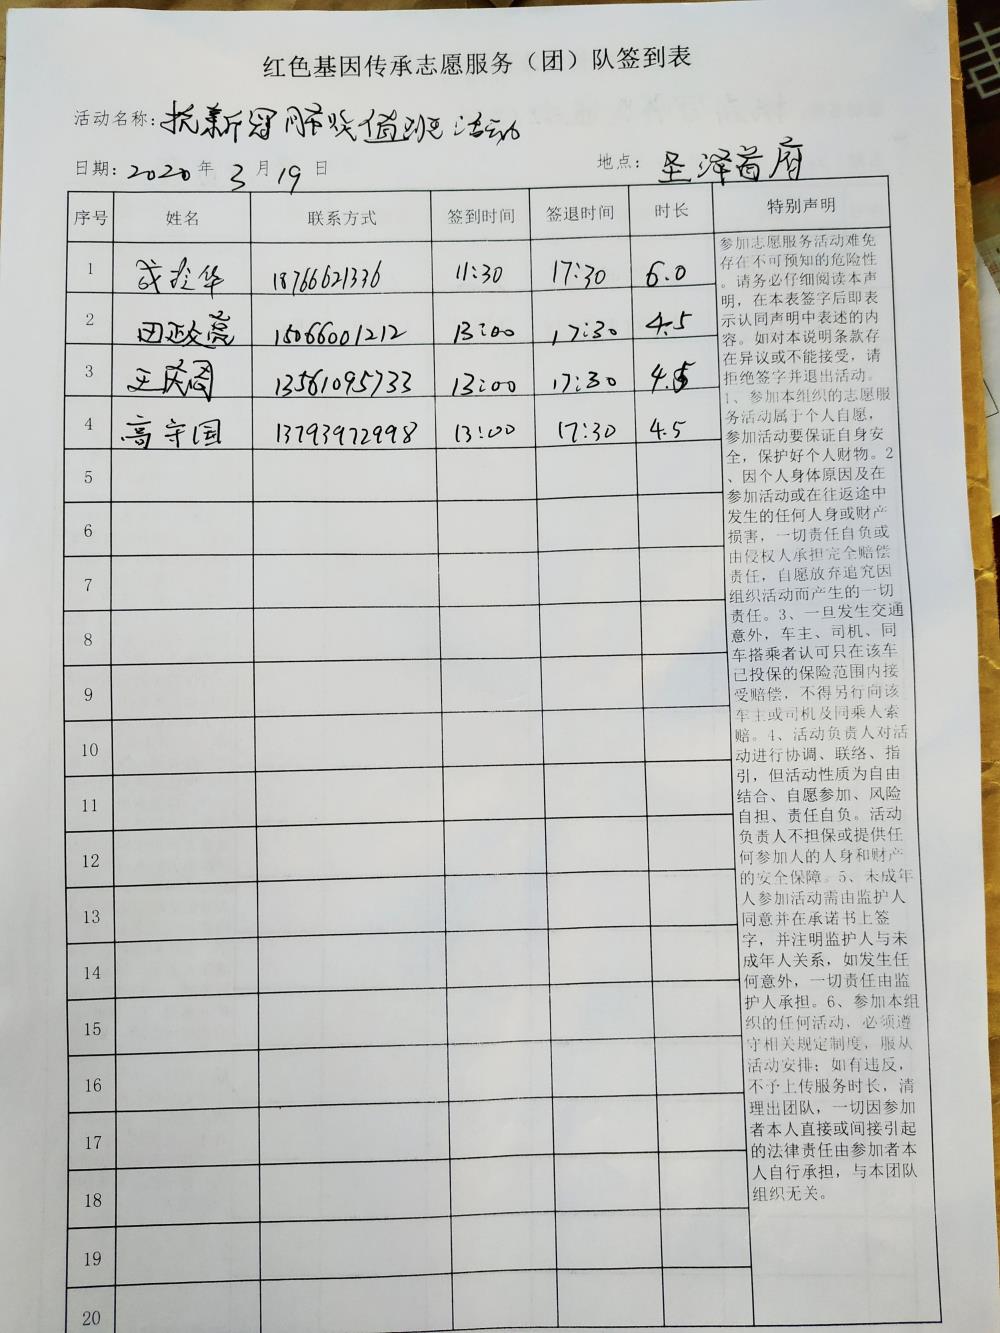 红色基因传承志愿服务（团）队签到表
活动名称：抗新冠肺炎值班活动
日期：2020 年 3 月 19 日 地点：圣泽首府
序号 姓名 联系方式 签到时间 签退时间 时长 特别声明
1 华 18766621336 11:30 17:30 6.0
2 田政亮 15066001212 13:00 17:30 4.5
3 王庆阁 13561095733 13:00 17:30 4.5
4 高守国 13793972998 13:00 17:30 4.5
5
6
7
8
9
10
11
12
13
14
15
16
17
18
19
20
参加志愿服务活动难免
存在不可预知的危险性
。请务必仔细阅读本声
明，在本表签字后即表
示认同声明中表述的内
容。如对本说明条款存
在异议或不能接受，请
拒绝签字并退出活动。
1、参加本组织的志愿服
务活动属于个人自愿，
参加活动要保证自身安
全，保护好个人财物。2
、因个人身体原因及在
参加活动或在往返途中
发生的任何人身或财产
损害，一切责任自负或
由侵权人承担完全赔偿
责任，自愿放弃追究因
组织活动而产生的一切
责任。3、一旦发生交通
意外，车主、司机、同
车搭乘者认可只在该车
已投保的保险范围内接
受赔偿，不得另行向该
车主或司机及同乘人索
赔。4、活动负责人对活
动进行协调、联络、指
引，但活动性质为自由
结合、自愿参加、风险
自担、责任自负。活动
负责人不担保或提供任
何参加人的人身和财产
的安全保障。5、未成年
人参加活动需由监护人
同意并在承诺书上签
字，并注明监护人与未
成年人关系，如发生任
何意外，一切责任由监
护人承担。6、参加本组
织的任何活动，必须遵
守相关规定制度，服从
活动安排；如有违反，
不予上传服务时长，清
理出团队，一切因参加
者本人直接或间接引起
的法律责任由参加者本
人自行承担，与本团队
组织无关。